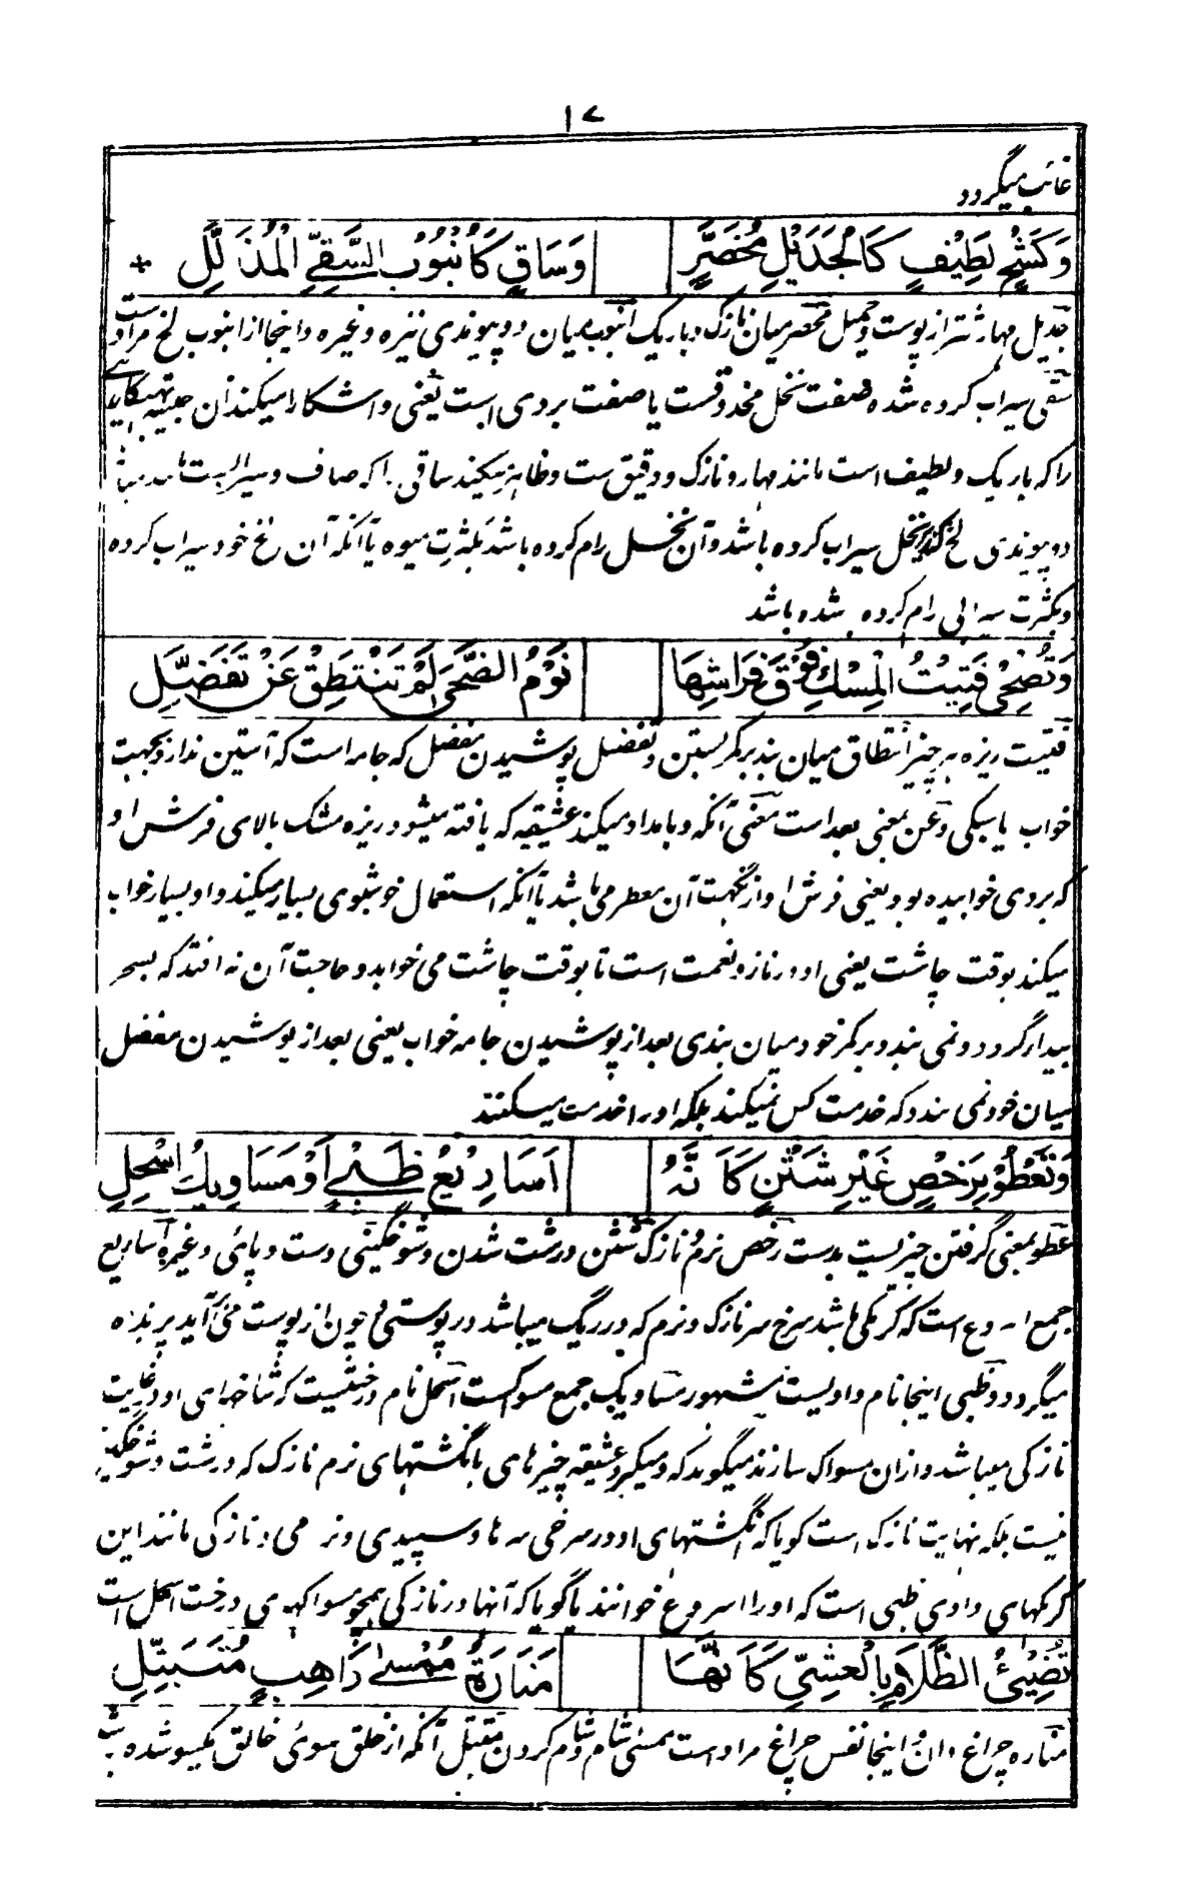 ١٧
غائب میگردد
وَكَشْحٍ لَطِيْفٍ كَالْجَدِيْلِ مُخَصَّرٍ وَسَاقٍ كَاُنْبُوْبِ السَّقِيِّ الْمُذَلَّلِ
جدیل مهار شتر از پوست و جمیل مخصر میان نازک و باریک انبوب میان دو پیوندی نیزه و غیره و اینجا از انبوب لخ مراد است
سقی سیراب کرده شده صفت نخل محذوفست یا صفت بردی است یعنی و آشکارا میکند آن حبیبه
را که باریک و لطیف است مانند مهار و نازک و دقیق ست و ظاهر میکند ساقی را که صاف و سیراب ست مانند میان
دو پیوندی لخ که نخل سیراب کرده باشد و آن نخل رام کرده باشد بکثرت میوه یا آنکه آن لخ خود سیراب کرده
و بکثرت سیرابی رام کرده شده باشد
وَتُضْحِيْ فَتِيْتُ الْمِسْكِ فَوْقَ فِرَاشِهَا نَؤُمُ الضُّحَى لَمْ تَنْتَطِقْ عَنْ تَفَضُّلِ
فتیت ریزه هر چیز انتطاق میان بند بر کمر بستن و تفضل پوشیدن مفضل که جامه است که آستین ندارد بجهت
خواب یا سبکی و عن بمعنی بعد است معنی آنکه و بامداد میکند عشیقه که یافته میشود ریزه مشک بالای فرش او
که بروی خوابیده بود یعنی فرش او از نکهت آن معطر می باشد یا آنکه استعمال خوشبوی بسیار میکند و او بسیار خواب
میکند بوقت چاشت یعنی او در ناز و نعمت است تا بوقت چاشت می خوابد و حاجت آن نه افتد که بسحر
بیدار گردد و نمی بندد بر کمر خود میان بندی بعد از پوشیدن جامه خواب یعنی بعد از پوشیدن مفضل
میان خود نمی بندد که خدمت کس نمیکند بلکه او را خدمت میکنند
وَتَعْطُوْ بِرَخْصٍ غَيْرِ شَثْنٍ كَاَنَّهُ اَسَارِيْعُ ظَبْيٍ اَوْ مَسَاوِيْكُ اِسْحِلِ
عطو بمعنی گرفتن چیزیست بدست رخص نرم و نازک شثن درشت شدن و شوخگینی دست و پائی و غیره اساریع
جمع اسروع است که کرمکی باشد سرخ سر نازک و نرم که در ریگ میباشد در پوستی چون از پوست می آید پرنده
میگردد و ظبی اینجا نام وادیست مشهور مساویک جمع مسواکست اسحل نام درختیست که شاخهای او در غایت
نازکی میباشد و ازان مسواک سازند میگوید که و میگیرد عشیقه چیزهای بانگشتهای نرم نازک که درشت و شوخگین
نیست بلکه نهایت نازک است گویا که انگشتهای او در سرخی سرها و سپیدی و نرمی و نازکی مانند این
کرمکهای وادی ظبی است که او را اسروع خوانند یا گویا که آنها در نازکی همچو مسواکهای درخت اسحل است
تُضِيْئُ الظَّلَامَ بِالْعَشِيِّ كَاَنَّهَا مَنَارَةُ مُمْسٰى رَاهِبٍ مُتَبَتِّلِ
مناره چراغ دان اینجا نفس چراغ مراد است ممسی شام و شام کردن متبتل آنکه از خلق سوی خالق یکسو شده